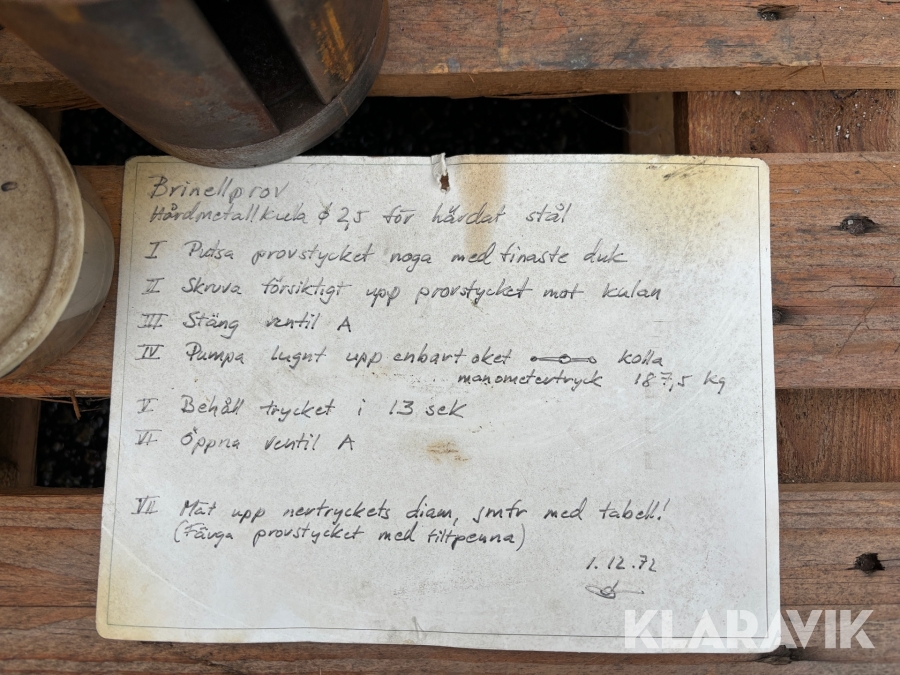 Brinellprov
Hårdmetallkula ϕ 2,5 för härdat stål
I Putsa provstycket noga med finaste duk
II Skruva försiktigt upp provstycket mot kulan
III Stäng ventil A
IV Pumpa lugnt upp enbart oket kolla
manometertryck 187,5 kg
V Behåll trycket i 13 sek
VI Öppna ventil A
VII Mät upp nertryckets diam, jmfr med tabell!
(Färga provstycket med filtpenna)
1.12.72
KLARAVIK